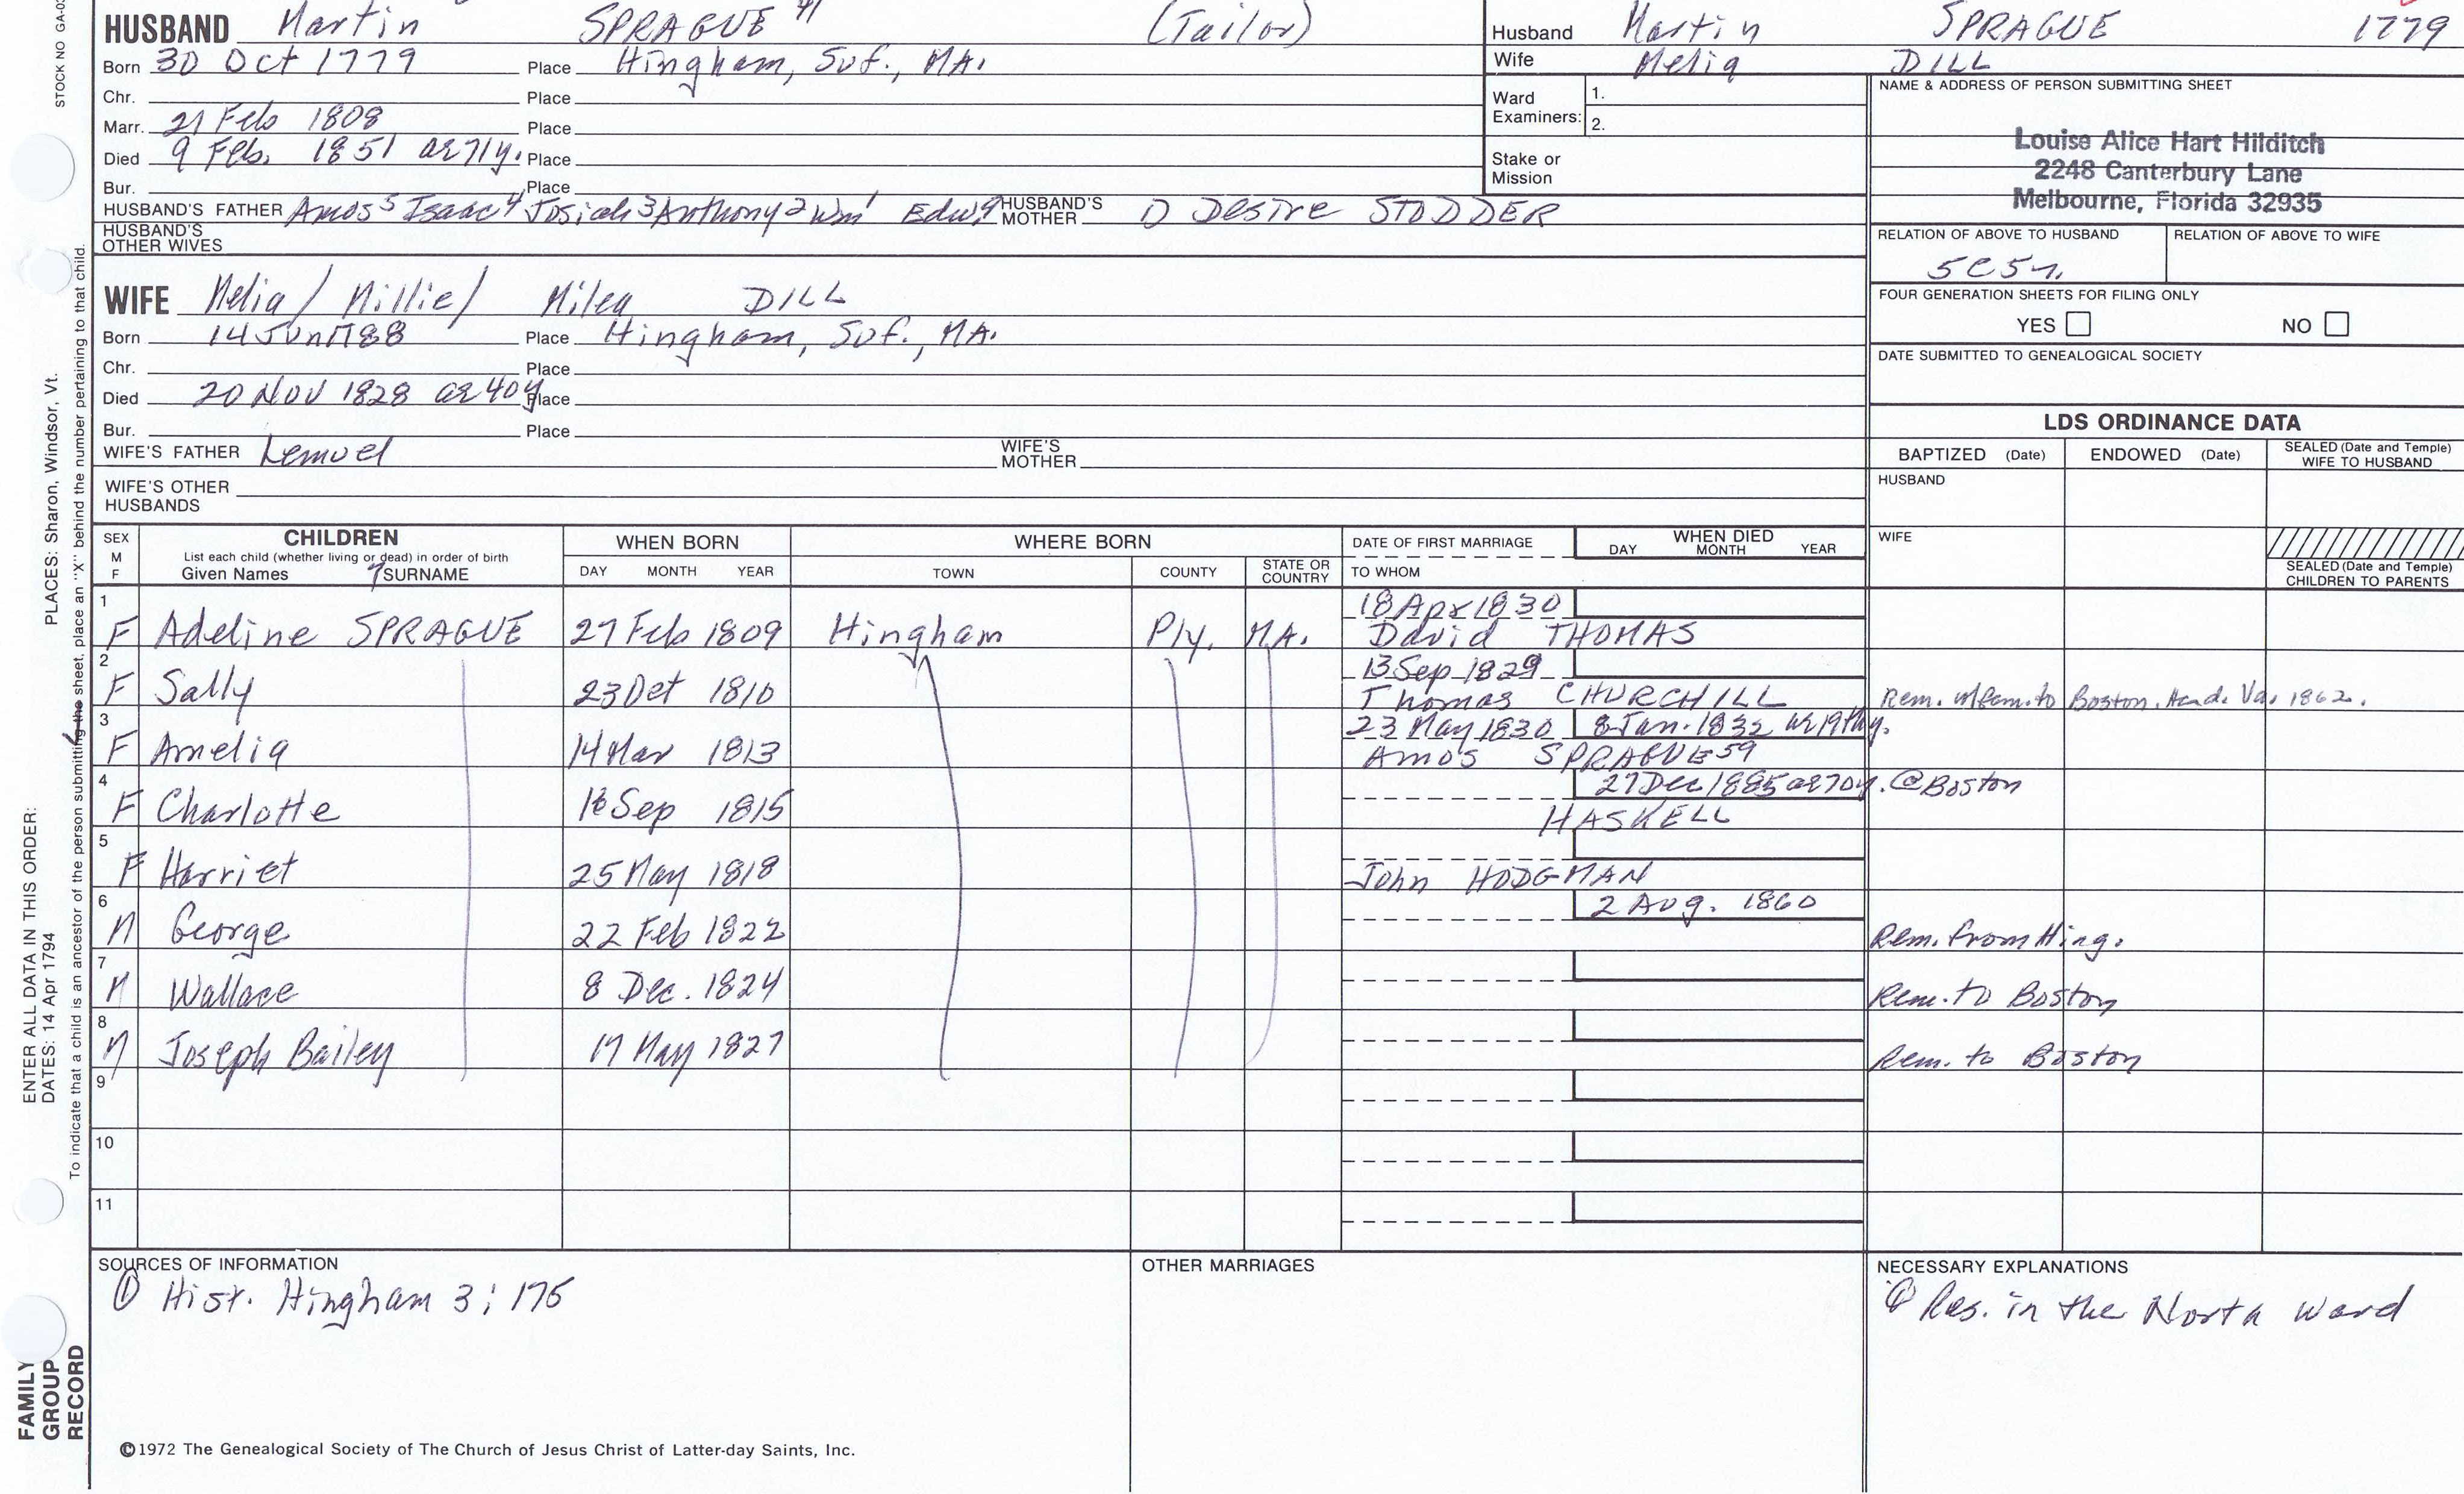 STOCK NO GA-0
HUSBAND Martin SPRAGUE (Tailor)
Born 30 Oct 1779 Place Hingham, Suf., MA.
Chr. Place
Marr. 21 Feb 1808 Place
Died 9 Feb. 1851 ae 71y. Place
Bur. Place
HUSBAND'S FATHER Amos⁵ Isaac⁴ Josiah³ Anthony² Wm¹ Edw. HUSBAND'S MOTHER 1) Desire STODDER
HUSBAND'S OTHER WIVES
WIFE Melia / Millie / Milea DILL
Born 14 Jun 1788 Place Hingham, Suf., MA.
Chr. Place
Died 20 Nov 1828 ae 40y Place
Bur. Place
WIFE'S FATHER Lemuel WIFE'S MOTHER
WIFE'S OTHER HUSBANDS
Husband Martin SPRAGUE 1779
Wife Melia DILL
Ward Examiners: 1.
2.
Stake or Mission
NAME & ADDRESS OF PERSON SUBMITTING SHEET
Louise Alice Hart Hilditch
2248 Canterbury Lane
Melbourne, Florida 32935
RELATION OF ABOVE TO HUSBAND RELATION OF ABOVE TO WIFE
5C5r.
FOUR GENERATION SHEETS FOR FILING ONLY
YES NO
DATE SUBMITTED TO GENEALOGICAL SOCIETY
LDS ORDINANCE DATA
BAPTIZED (Date) ENDOWED (Date) SEALED (Date and Temple) WIFE TO HUSBAND
HUSBAND
WIFE
SEALED (Date and Temple) CHILDREN TO PARENTS
SEX M F CHILDREN WHEN BORN WHERE BORN DATE OF FIRST MARRIAGE WHEN DIED
List each child (whether living or dead) in order of birth
Given Names SURNAME DAY MONTH YEAR TOWN COUNTY STATE OR COUNTRY TO WHOM DAY MONTH YEAR
1 18 Apr 1830
F Adeline SPRAGUE 27 Feb 1809 Hingham Ply. MA. David THOMAS
2 13 Sep 1829
F Sally 23 Oct 1810 Thomas CHURCHILL Rem. w/fam. to Boston. Va. 1862.
3 23 May 1830 8 Jan. 1832 ae 19th y.
F Amelia 14 Mar 1813 Amos SPRAGUE 59
4 27 Dec 1885 ae 70y. @ Boston
F Charlotte 16 Sep 1815 HASKELL
5
F Harriet 25 May 1818 John HODGMAN
6 2 Aug. 1860
M George 22 Feb 1822 Rem. from Hing.
7
M Wallace 8 Dec. 1824 Rem. to Boston
8
M Joseph Bailey 17 May 1827 Rem. to Boston
9
10
11
SOURCES OF INFORMATION
① Hist. Hingham 3; 175
OTHER MARRIAGES
NECESSARY EXPLANATIONS
① Res. in the North Ward
©1972 The Genealogical Society of The Church of Jesus Christ of Latter-day Saints, Inc.
FAMILY GROUP RECORD
ENTER ALL DATA IN THIS ORDER:
DATES: 14 Apr 1794 PLACES: Sharon, Windsor, Vt.
To indicate that a child is an ancestor of the person submitting the sheet, place an "X" behind the number pertaining to that child.